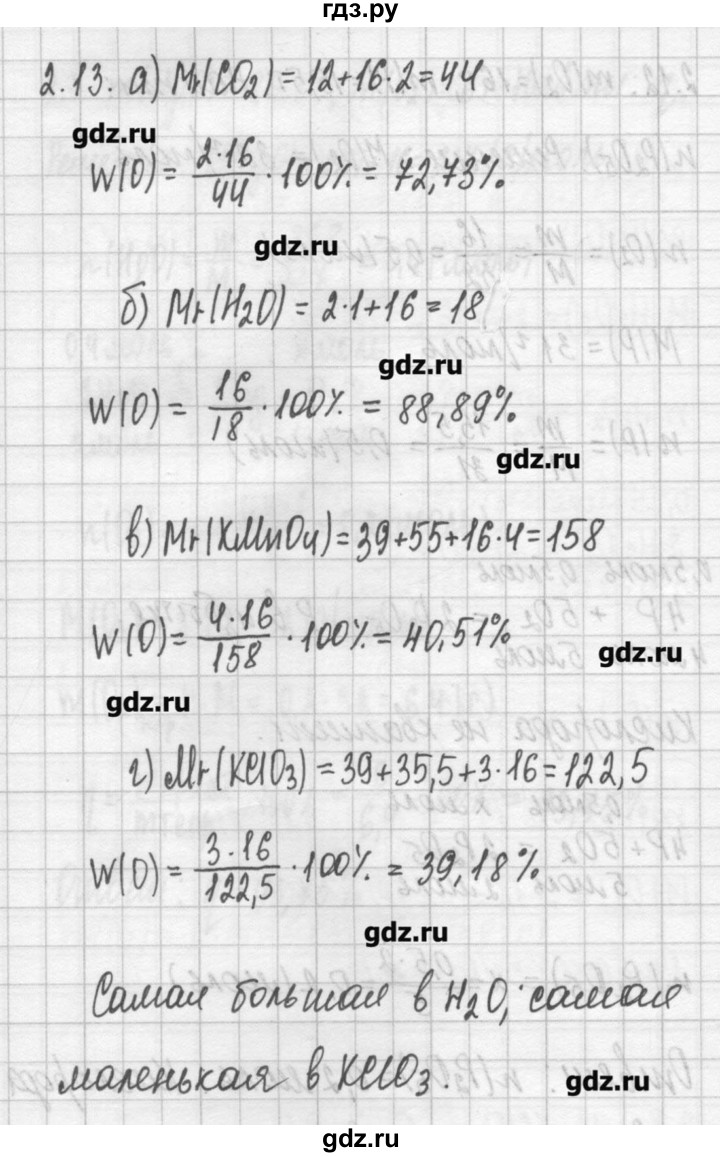 гдз.ру
2.13. а) Mr(CO2) = 12+16·2=44
gdz.ru
W(O) = 2·16/44 · 100% = 72,73%.
gdz.ru
б) Mr(H2O) = 2·1+16 = 18
gdz.ru
W(O) = 16/18 · 100% = 88,89%.
gdz.ru
в) Mr(KMnO4) = 39+55+16·4=158
W(O) = 4·16/158 · 100% = 40,51%
gdz.ru
gdz.ru
г) Mr(KClO3) = 39+35,5+3·16=122,5
W(O) = 3·16/122,5 · 100% = 39,18%
gdz.ru
Самая большая в H2O, самая
маленькая в KClO3.
gdz.ru
gdz.ru